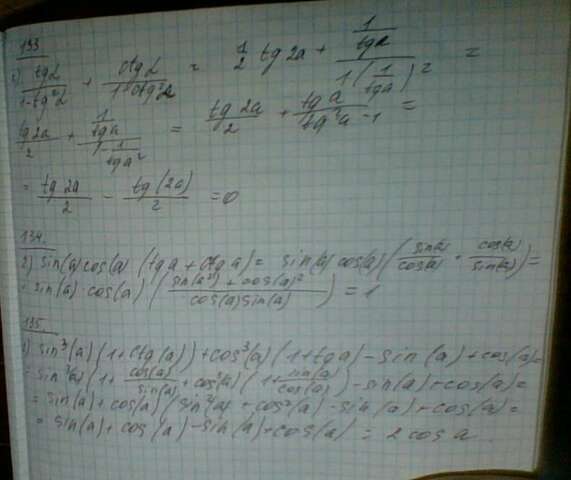 133
2) tgα/(1-tg²α) + ctgα/(1-ctg²α) = 1/2 tg 2a + (1/tga)/(1(1/tga)²) =
tg2a/2 + (1/tga)/(1-1/tga²) = tg 2a/2 + tg a/(tg²a - 1) =
= tg 2a/2 - tg(2a)/2 = 0
134
2) sin(a) cos(a) (tg a + ctg a) = sin(a) cos(a) (sin(a)/cos(a) + cos(a)/sin(a)) =
= sin(a) · cos(a) (sin(a²) + cos(a)²/cos(a) sin(a)) = 1
135
1) sin³(a) (1+ctg(a)) + cos³(a) (1+tg a) - sin(a) + cos(a) =
= sin³(a) (1 + cos(a)/sin(a) + cos³(a) (1 + sin(a)/cos(a)) - sin(a) + cos(a) =
= sin(a) + cos(a) (sin²(a) + cos²(a) - sin(a) + cos(a) =
= sin(a) + cos(a) - sin(a) + cos(a) = 2 cos a